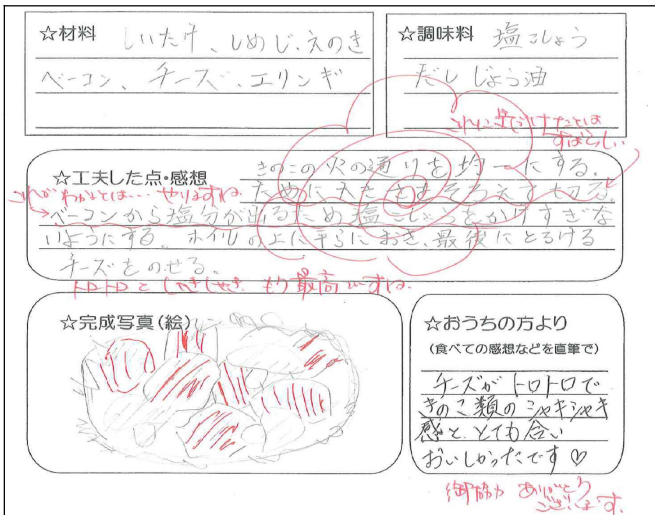 ☆材料 しいたけ、しめじ、えのき
ベーコン、チーズ、エリンギ
☆調味料 塩こしょう
だしじょう油
これに気づけたことは
すばらしい
☆工夫した点・感想 きのこの火の通りを均一にする。
ために大きさをそろえて切る。
これがわかるとは… やりますね。
ベーコンから塩分が出るため塩こしょうをかけすぎな
いようにする。ホイルの上に平らにおき、最後にとろける
チーズをのせる。
トロトロとしゃきしゃき もう最高ですね。
☆完成写真(絵)
☆おうちの方より
(食べての感想などを直筆で)
チーズがトロトロで
きのこ類のシャキシャキ
感と、とても合い
おいしかったです♡
御協力 ありがとう
ございます。